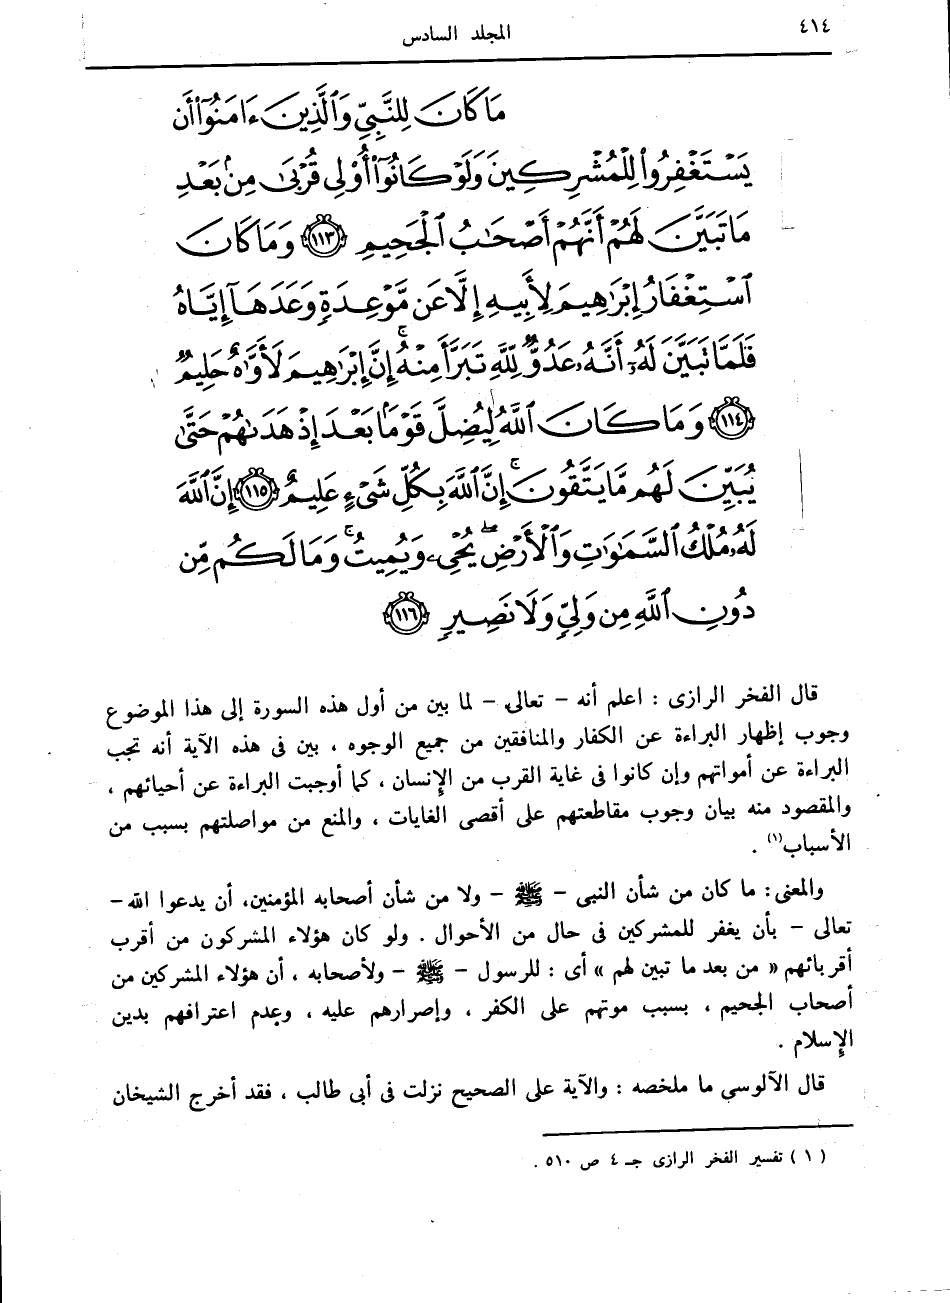 ٤١٤
المجلد السادس
مَا كَانَ لِلنَّبِىِّ وَٱلَّذِينَ ءَامَنُوٓا۟ أَن
يَسْتَغْفِرُوا۟ لِلْمُشْرِكِينَ وَلَوْ كَانُوٓا۟ أُو۟لِى قُرْبَىٰ مِنۢ بَعْدِ
مَا تَبَيَّنَ لَهُمْ أَنَّهُمْ أَصْحَٰبُ ٱلْجَحِيمِ ﴿١١٣﴾ وَمَا كَانَ
ٱسْتِغْفَارُ إِبْرَٰهِيمَ لِأَبِيهِ إِلَّا عَن مَّوْعِدَةٍ وَعَدَهَآ إِيَّاهُ
فَلَمَّا تَبَيَّنَ لَهُۥٓ أَنَّهُۥ عَدُوٌّ لِّلَّهِ تَبَرَّأَ مِنْهُ ۚ إِنَّ إِبْرَٰهِيمَ لَأَوَّٰهٌ حَلِيمٌ
﴿١١٤﴾ وَمَا كَانَ ٱللَّهُ لِيُضِلَّ قَوْمًۢا بَعْدَ إِذْ هَدَىٰهُمْ حَتَّىٰ
يُبَيِّنَ لَهُم مَّا يَتَّقُونَ ۚ إِنَّ ٱللَّهَ بِكُلِّ شَىْءٍ عَلِيمٌ ﴿١١٥﴾ إِنَّ ٱللَّهَ
لَهُۥ مُلْكُ ٱلسَّمَٰوَٰتِ وَٱلْأَرْضِ ۖ يُحْىِۦ وَيُمِيتُ ۚ وَمَا لَكُم مِّن
دُونِ ٱللَّهِ مِن وَلِىٍّ وَلَا نَصِيرٍ ﴿١١٦﴾
قال الفخر الرازى : اعلم أنه – تعالى – لما بين من أول هذه السورة إلى هذا الموضوع
وجوب إظهار البراءة عن الكفار والمنافقين من جميع الوجوه ، بين فى هذه الآية أنه تجب
البراءة عن أمواتهم وإن كانوا فى غاية القرب من الإنسان ، كما أوجبت البراءة عن أحيائهم ،
والمقصود منه بيان وجوب مقاطعتهم على أقصى الغايات ، والمنع من مواصلتهم بسبب من
الأسباب(١) .
والمعنى : ما كان من شأن النبى – ﷺ – ولا من شأن أصحابه المؤمنين، أن يدعوا الله –
تعالى – بأن يغفر للمشركين فى حال من الأحوال . ولو كان هؤلاء المشركون من أقرب
أقربائهم « من بعد ما تبين لهم » أى : للرسول – ﷺ – ولأصحابه ، أن هؤلاء المشركين من
أصحاب الجحيم ، بسبب موتهم على الكفر ، وإصرارهم عليه ، وعدم اعترافهم بدين
الإسلام .
قال الآلوسي ما ملخصه : والآية على الصحيح نزلت فى أبى طالب ، فقد أخرج الشيخان
( ١ ) تفسير الفخر الرازى جـ ٤ ص ٥١٠ .